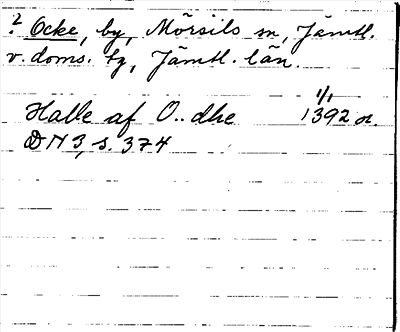 ? Ocke, by, Mörsils sn, Jämtl.
v. doms. tg, Jämtl. län.
1/1
Halle af O..dhe 1392 or.
DN 3, s. 374